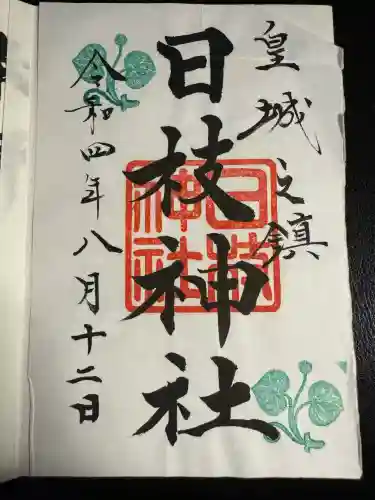 皇城之鎮
日枝神社
令和四年八月十二日
日枝
神社